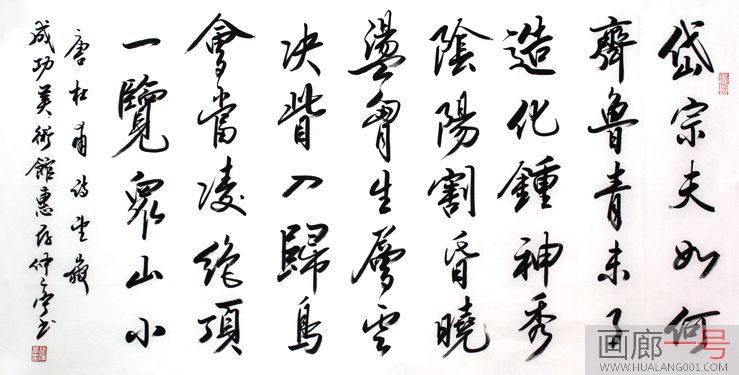 岱宗夫如何
齊魯青未了
造化鍾神秀
陰陽割昏曉
盪胷生層雲
决眥入歸鳥
會當凌絶頂
一覽眾山小
唐杜甫詩望嶽
成功美術館惠存仲亭书
画廊一号
WWW.HUALANG001.COM